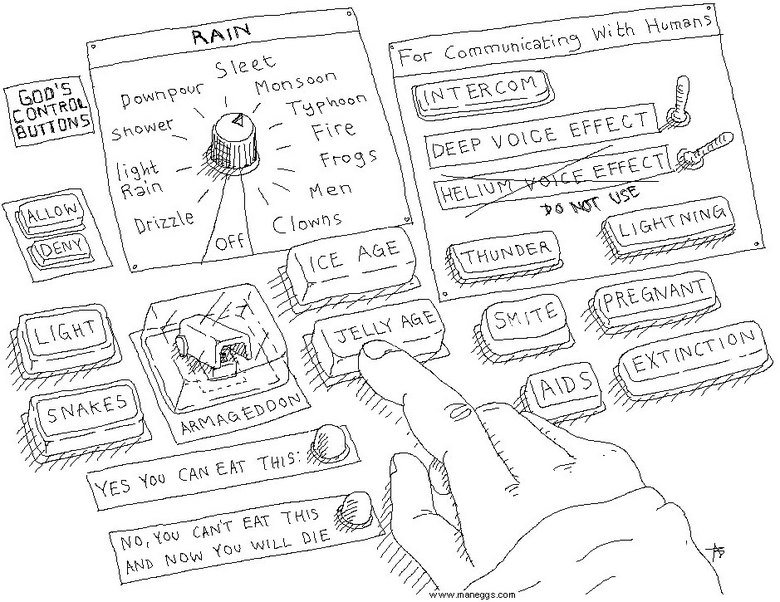 GOD'S
CONTROL
BUTTONS
ALLOW
DENY
RAIN
Sleet
Downpour
Monsoon
Shower
Typhoon
Fire
light
Rain
Frogs
Men
Drizzle
Clowns
OFF
For Communicating With Humans
INTERCOM
DEEP VOICE EFFECT
HELIUM VOICE EFFECT
DO NOT USE
THUNDER
LIGHTNING
ICE AGE
JELLY AGE
SMITE
PREGNANT
AIDS
EXTINCTION
LIGHT
SNAKES
ARMAGEDDON
YES YOU CAN EAT THIS:
NO, YOU CAN'T EAT THIS
AND NOW YOU WILL DIE
www.maneggs.com